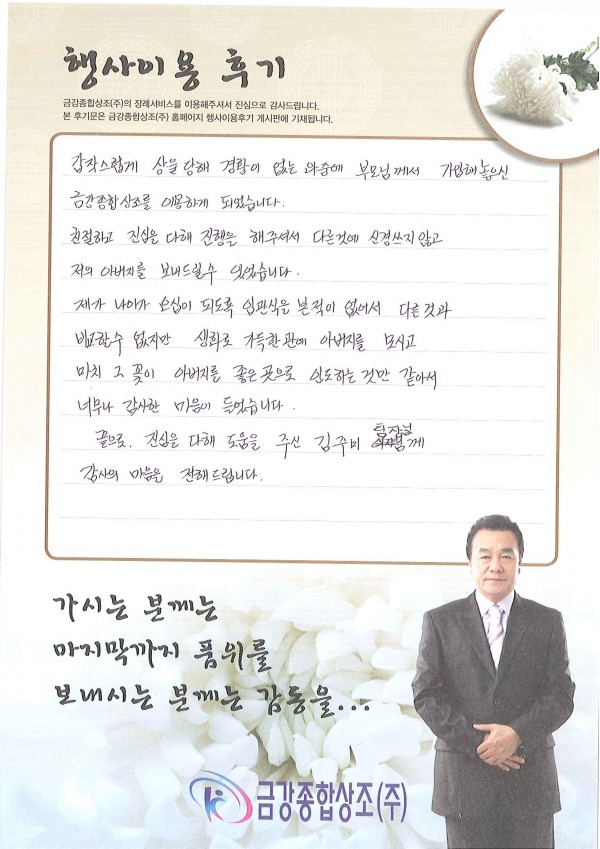 행사이용 후기
금강종합상조(주)의 장례서비스를 이용해주셔서 진심으로 감사드립니다.
본 후기문은 금강종합상조(주) 홈페이지 행사이용후기 게시판에 기재됩니다.
갑작스럽게 상을 당해 경황이 없는 와중에 부모님께서 가입해놓으신
금강종합상조를 이용하게 되었습니다.
친절하고 진심을 다해 진행을 해주셔서 다른것에 신경쓰지않고
저의 아버지를 보내드릴수 있었습니다.
제가 나이가 오십이 되도록 입관식을 본적이 없어서 다른것과
비교할수 없지만 생화로 가득한관에 아버지를 모시고
마치 그 꽃이 아버지를 좋은 곳으로 인도하는 것만 같아서
너무나 감사한 마음이 들었습니다.
끝으로, 진심을 다해 도움을 주신 김주미 팀장님께
감사의 마음을 전해드립니다.
가시는 분께는
마지막까지 품위를
보내시는 분께는 감동을...
금강종합상조(주)